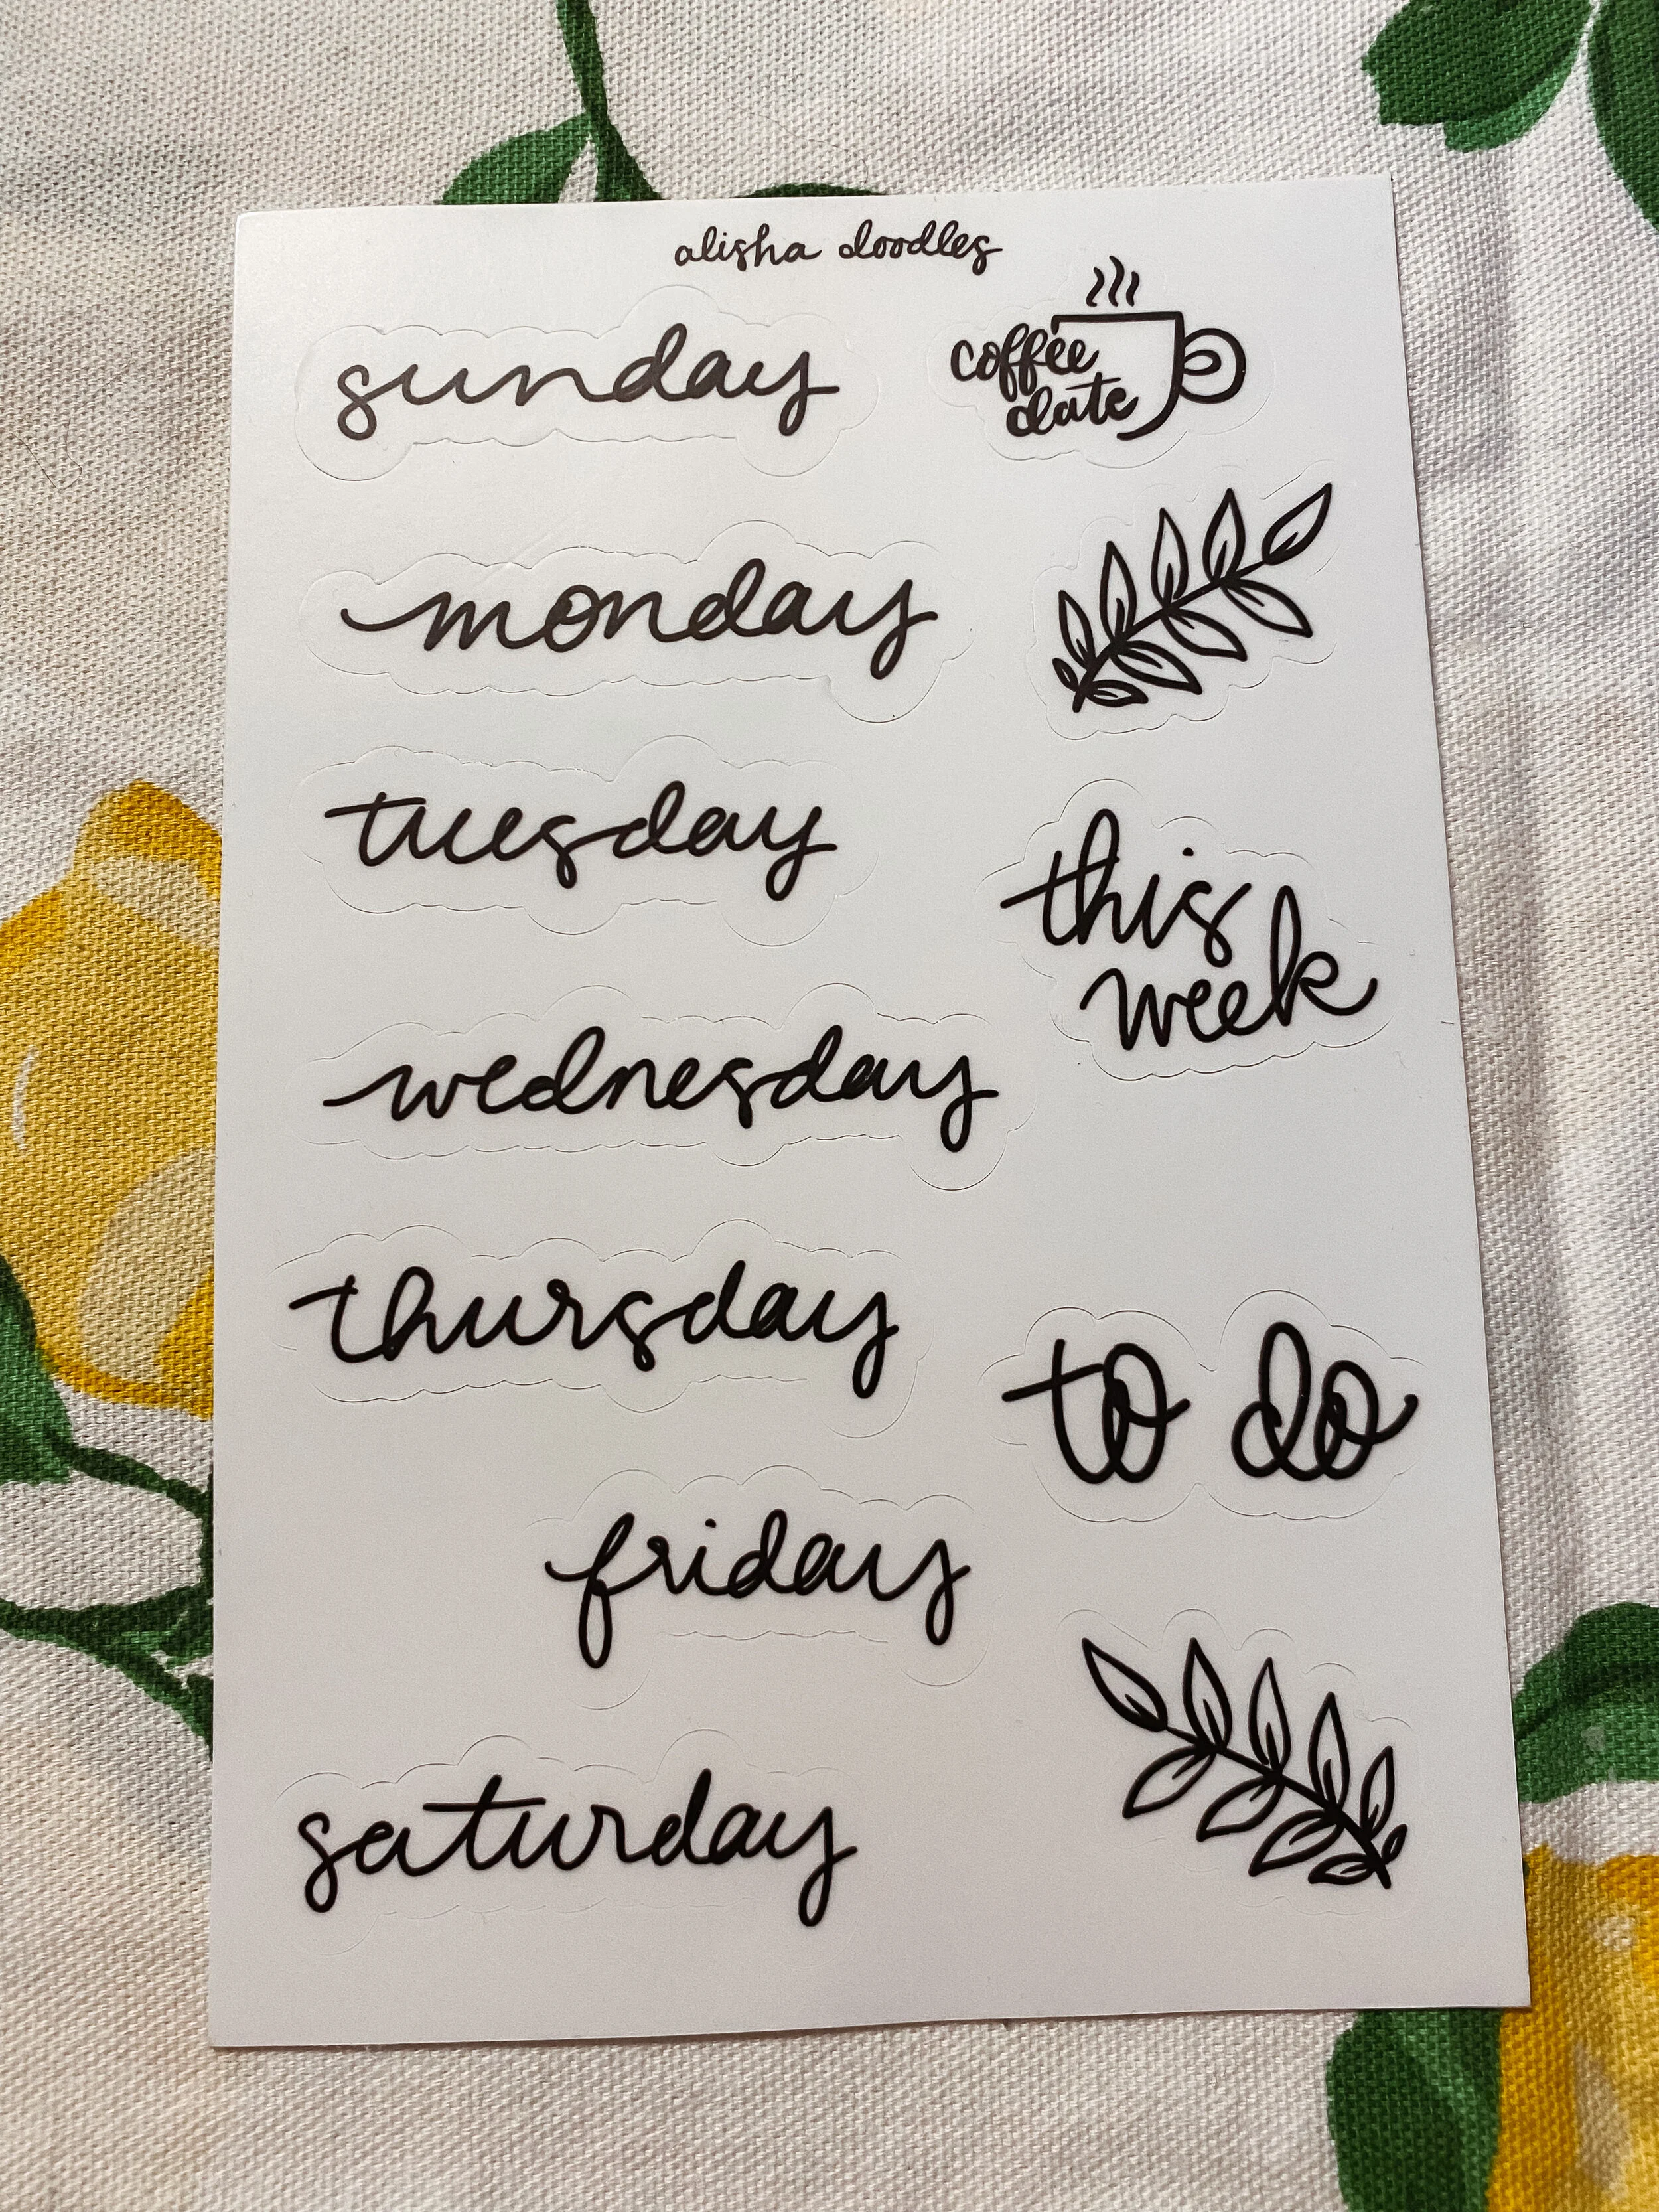 alisha doodles
sunday
coffee
date
monday
tuesday
this
week
wednesday
thursday
to do
friday
saturday